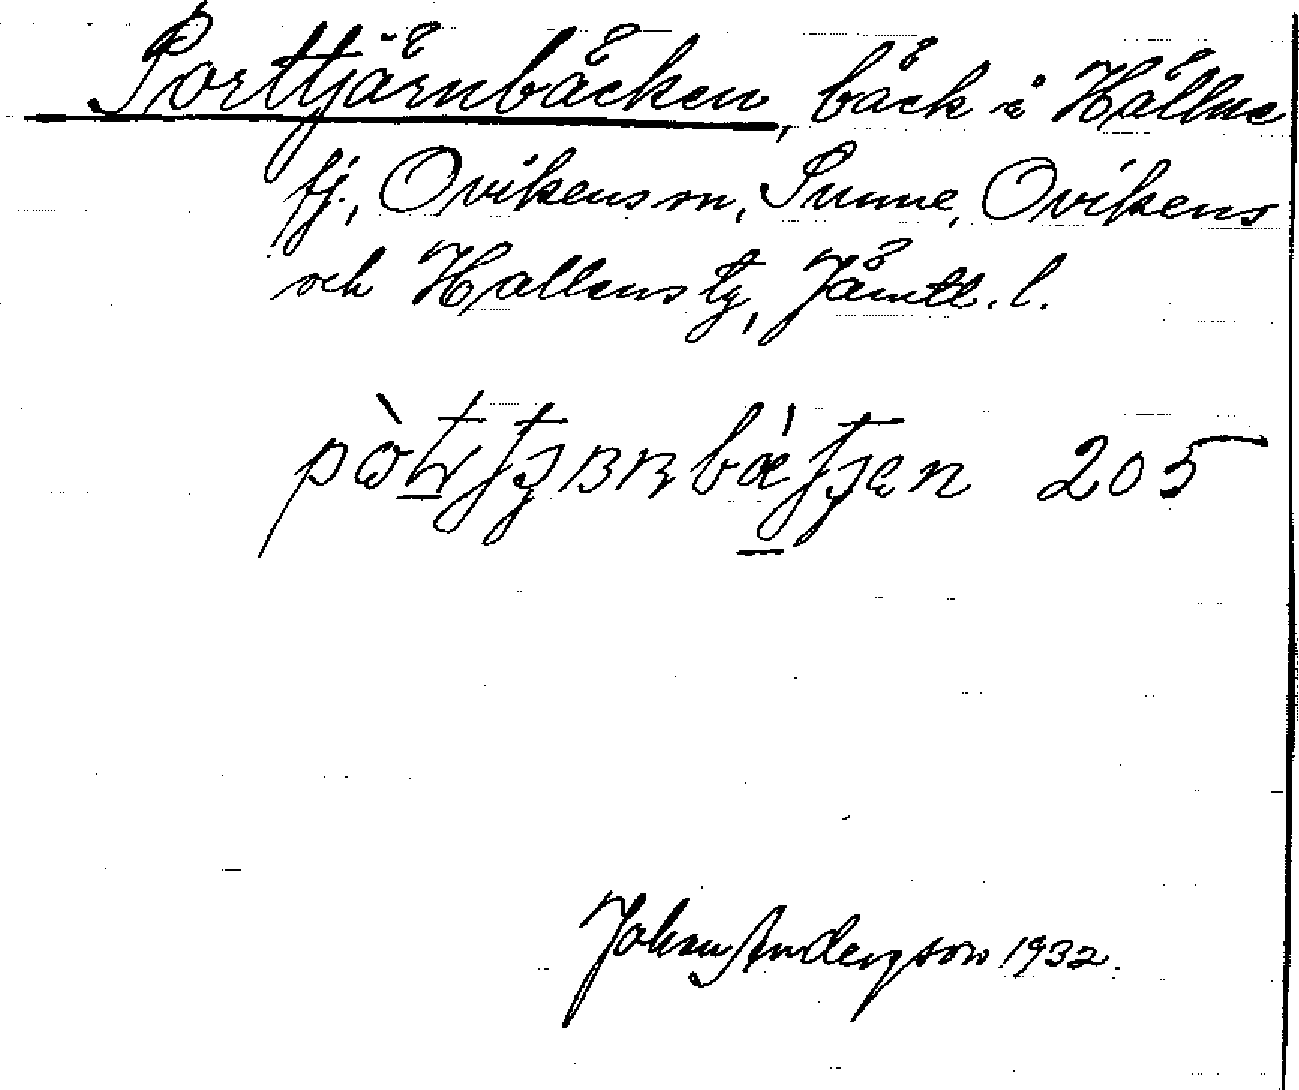 Porttjärnbäcken, bäck i Hällne
fj., Ovikens sn, Sunne, Ovikens
och Hallens tg, Jämtl. l.
205
Johan Anderson 1932.